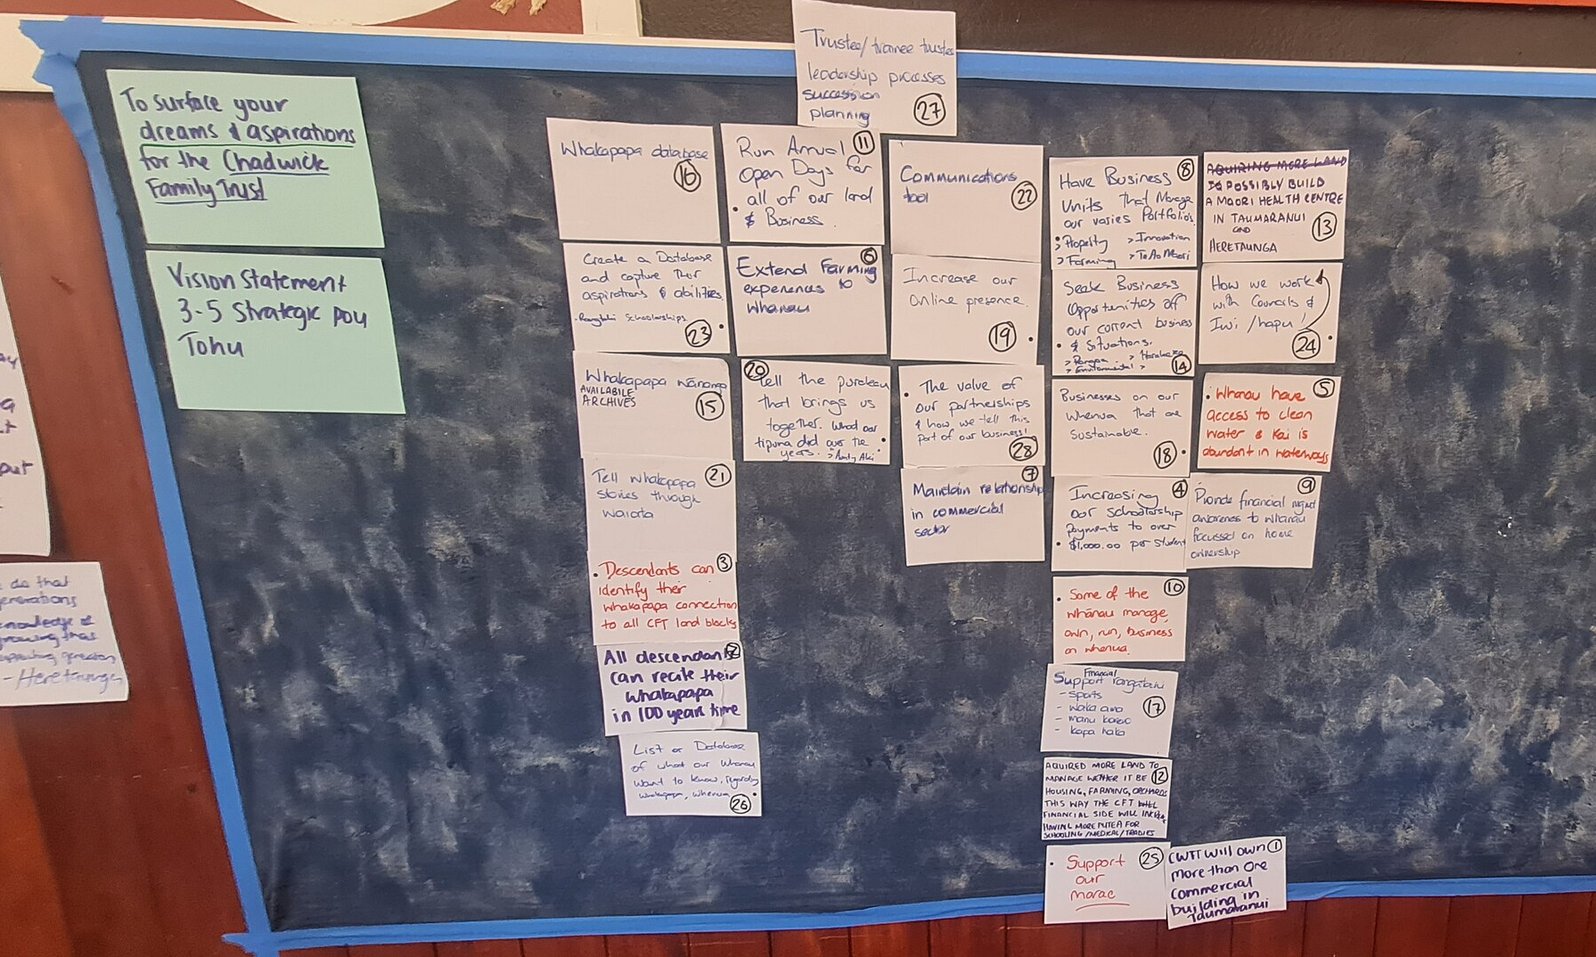 To surface your
dreams & aspirations
for the Chadwick
Family Trust
Vision Statement
3-5 Strategic pou
Tohu
Trustee/trainee trustee
leadership processes
succession
planning
27
Whakapapa database
16
Create a Database
and capture their
aspirations & abilities
Scholarships
23
Whakapapa wānanga
AVAILABLE
ARCHIVES
15
Tell whakapapa
stories through
waiata
21
Descendants can
identify their
whakapapa connection
to all CFT land blocks
3
All descendants
can recite their
whakapapa
in 100 years time
2
List or Database
of what our Whanau
want to know, regarding
whakapapa, whenua
26
Run Annual
Open Days for
all of our land
& Business
11
Extend Farming
experiences to
whanau
6
20
Tell the purakau
that brings us
together. What our
tipuna did over the
years.
Communications
tool
22
Increase our
Online presence
19
The value of
our partnerships
& how we tell this
part of our business!
28
Maintain relationship
in commercial
sector
7
Have Business
Units that Manage
our varies Portfolio's
> Property > Innovation
> Farming > Te Ao Māori
8
Seek Business
Opportunities off
our current business
& Situations.
> Environmental >
14
Businesses on our
Whenua that are
sustainable.
18
Increasing
our schoolarship
payments to over
$1,000.00 per student
4
Some of the
whānau manage,
own, run, business
on whenua.
10
Financial
Support rangatahi
- sports
- waka ama
- manu korero
- kapa haka
17
AQUIRED MORE LAND TO
MANAGE WETHER IT BE
HOUSING, FARMING, ORCHARDS
THIS WAY THE CFT WILL
FINANCIAL SIDE WILL INCREASE
HAVING MORE PUTEA FOR
SCHOOLING/MEDICAL/TRADIES
12
Support
our
marae
25
CWTT will own
more than one
commercial
building in
Taumaranui
1
AQUIRING MORE LAND
TO POSSIBLY BUILD
A MAORI HEALTH CENTRE
IN TAUMARANUI
AND
HERETAUNGA
13
How we work
with Councils &
Iwi/hapu!
24
Whanau have
access to clean
water & Kai is
abundant in waterways
5
Provide financial mgmt
awareness to whanau
focussed on home
ownership
9
do that
knowledge &
growing that
- Heretaunga